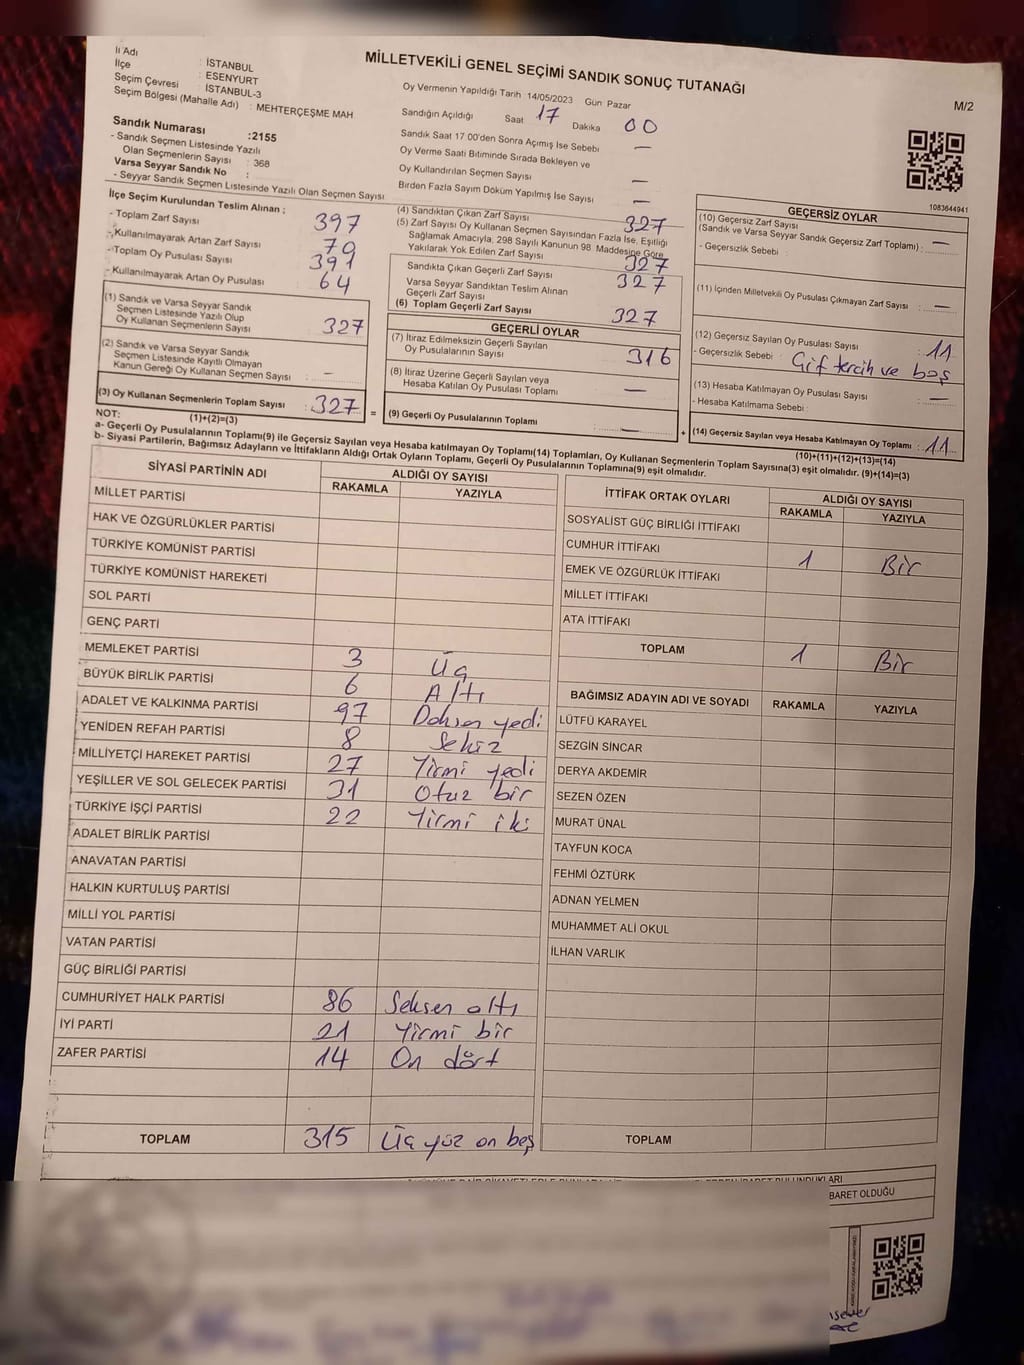 MİLLETVEKİLİ GENEL SEÇİMİ SANDIK SONUÇ TUTANAĞI
M/2
İl Adı : İSTANBUL
İlçe : ESENYURT
Seçim Çevresi : İSTANBUL-3
Seçim Bölgesi (Mahalle Adı) : MEHTERÇEŞME MAH
Sandık Numarası :2155
- Sandık Seçmen Listesinde Yazılı
Olan Seçmenlerin Sayısı : 368
Varsa Seyyar Sandık No :
- Seyyar Sandık Seçmen Listesinde Yazılı Olan Seçmen Sayısı
Oy Vermenin Yapıldığı Tarih 14/05/2023 Gün Pazar
Sandığın Açıldığı Saat 17 Dakika 00
Sandık Saat 17 00'den Sonra Açımış İse Sebebi —
Oy Verme Saati Bitiminde Sırada Bekleyen ve
Oy Kullandırılan Seçmen Sayısı —
Birden Fazla Sayım Döküm Yapılmış İse Sayısı —
1083644941
İlçe Seçim Kurulundan Teslim Alınan ;
- Toplam Zarf Sayısı 397
- Kullanılmayarak Artan Zarf Sayısı 70
- Toplam Oy Pusulası Sayısı 391
- Kullanılmayarak Artan Oy Pusulası 64
(1) Sandık ve Varsa Seyyar Sandık
Seçmen Listesinde Yazılı Olup
Oy Kullanan Seçmenlerin Sayısı : 327
(2) Sandık ve Varsa Seyyar Sandık
Seçmen Listesinde Kayıtlı Olmayan
Kanun Gereği Oy Kullanan Seçmen Sayısı : —
(3) Oy Kullanan Seçmenlerin Toplam Sayısı : 327 =
(1)+(2)=(3)
(4) Sandıktan Çıkan Zarf Sayısı 327
(5) Zarf Sayısı Oy Kullanan Seçmen Sayısından Fazla İse, Eşitliği
Sağlamak Amacıyla; 298 Sayılı Kanunun 98 Maddesine Göre
Yakılarak Yok Edilen Zarf Sayısı
Sandıkta Çıkan Geçerli Zarf Sayısı 327
Varsa Seyyar Sandıktan Teslim Alınan
Geçerli Zarf Sayısı 327
(6) Toplam Geçerli Zarf Sayısı 327
GEÇERLİ OYLAR
(7) İtiraz Edilmeksizin Geçerli Sayılan
Oy Pusulalarının Sayısı 316
(8) İtiraz Üzerine Geçerli Sayılan veya
Hesaba Katılan Oy Pusulası Toplamı —
(9) Geçerli Oy Pusulalarının Toplamı : — +
GEÇERSİZ OYLAR
(10) Geçersiz Zarf Sayısı
(Sandık ve Varsa Seyyar Sandık Geçersiz Zarf Toplamı) : —
- Geçersizlik Sebebi :
(11) İçinden Milletvekili Oy Pusulası Çıkmayan Zarf Sayısı : —
(12) Geçersiz Sayılan Oy Pusulası Sayısı : 11
- Geçersizlik Sebebi : Çif tercih ve boş
(13) Hesaba Katılmayan Oy Pusulası Sayısı : —
- Hesaba Katılmama Sebebi :
(14) Geçersiz Sayılan veya Hesaba Katılmayan Oy Toplamı : 11
(10)+(11)+(12)+(13)=(14)
NOT:
a- Geçerli Oy Pusulalarının Toplamı(9) ile Geçersiz Sayılan veya Hesaba katılmayan Oy Toplamı(14) Toplamları, Oy Kullanan Seçmenlerin Toplam Sayısına(3) eşit olmalıdır. (9)+(14)=(3)
b- Siyasi Partilerin, Bağımsız Adayların ve İttifakların Aldığı Ortak Oyların Toplamı, Geçerli Oy Pusulalarının Toplamına(9) eşit olmalıdır.
SİYASİ PARTİNİN ADI ALDIĞI OY SAYISI
RAKAMLA YAZIYLA
MİLLET PARTİSİ
HAK VE ÖZGÜRLÜKLER PARTİSİ
TÜRKİYE KOMÜNİST PARTİSİ
TÜRKİYE KOMÜNİST HAREKETİ
SOL PARTİ
GENÇ PARTİ
MEMLEKET PARTİSİ 3 Üç
BÜYÜK BİRLİK PARTİSİ 6 Altı
ADALET VE KALKINMA PARTİSİ 97 Doksen yedi
YENİDEN REFAH PARTİSİ 8 Sekiz
MİLLİYETÇİ HAREKET PARTİSİ 27 Yirmi yedi
YEŞİLLER VE SOL GELECEK PARTİSİ 31 Otuz bir
TÜRKİYE İŞÇİ PARTİSİ 22 Yirmi iki
ADALET BİRLİK PARTİSİ
ANAVATAN PARTİSİ
HALKIN KURTULUŞ PARTİSİ
MİLLİ YOL PARTİSİ
VATAN PARTİSİ
GÜÇ BİRLİĞİ PARTİSİ
CUMHURİYET HALK PARTİSİ 86 Seksen altı
İYİ PARTİ 21 Yirmi bir
ZAFER PARTİSİ 14 On dört
TOPLAM 315 Üç yüz on beş
İTTİFAK ORTAK OYLARI ALDIĞI OY SAYISI
RAKAMLA YAZIYLA
SOSYALİST GÜÇ BİRLİĞİ İTTİFAKI
CUMHUR İTTİFAKI 1 Bir
EMEK VE ÖZGÜRLÜK İTTİFAKI
MİLLET İTTİFAKI
ATA İTTİFAKI
TOPLAM 1 Bir
BAĞIMSIZ ADAYIN ADI VE SOYADI RAKAMLA YAZIYLA
LÜTFÜ KARAYEL
SEZGİN SİNCAR
DERYA AKDEMİR
SEZEN ÖZEN
MURAT ÜNAL
TAYFUN KOCA
FEHMİ ÖZTÜRK
ADNAN YELMEN
MUHAMMET ALİ OKUL
İLHAN VARLIK
TOPLAM
BARET OLDUĞU